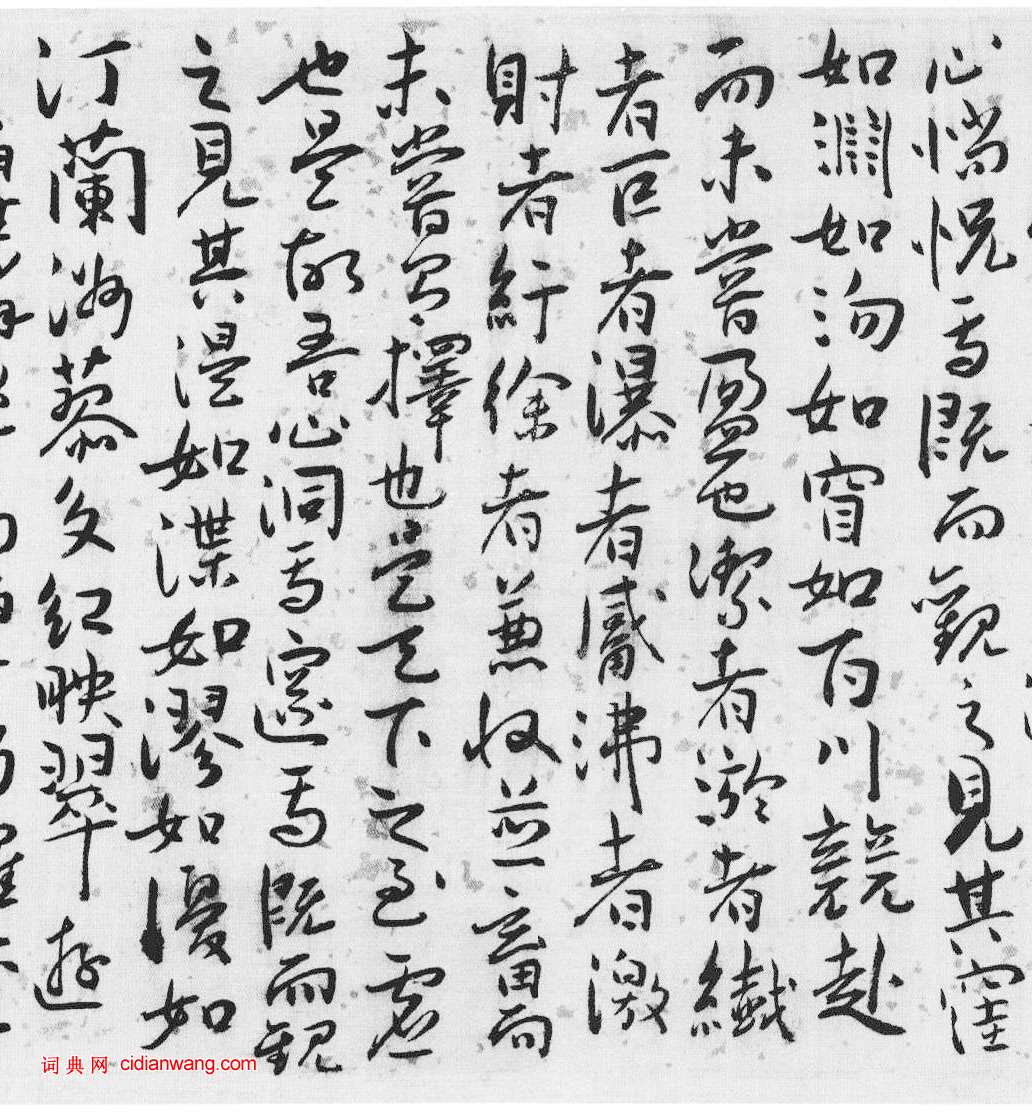 心惝怳焉既而觀之見其窪
如淵如沕如窅如百川競赴
而未嘗盈也潔者瀲者纖
者巨者瀑者觱沸者激
射者紆徐者兼收並畜而
未嘗有擇也是天下之至虛
也是故吾心洞焉邃焉既而觀
之見其漫如渫如漻如漫如
汀蘭洲藜文紅映翠遊
词典网 cidianwang.com